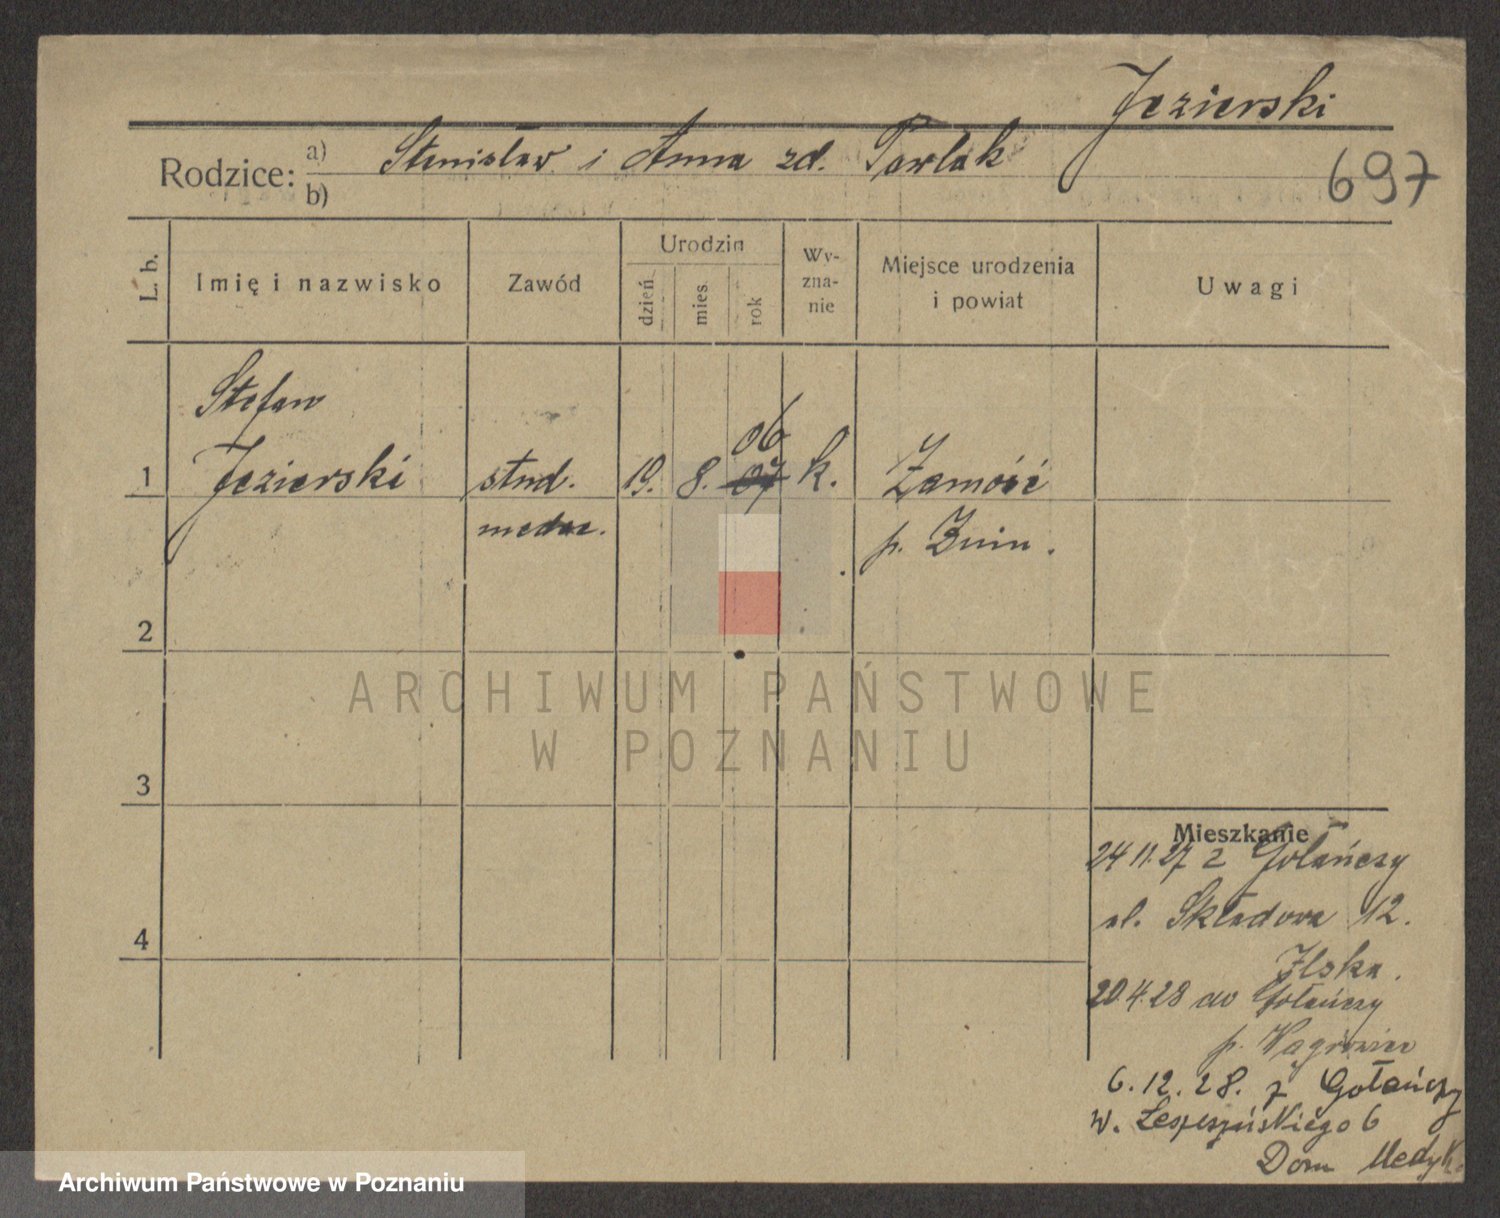 Jezierski
Rodzice: a) Stanisław i Anna zd. Pawlak
b)
697
L. b.
Imię i nazwisko
Zawód
Urodzin
dzień
mies.
rok
Wy-
zna-
nie
Miejsce urodzenia
i powiat
Uwagi
Stefan
06
1 Jezierski stud. 19. 8. 07 k. Zamość
medec. p. Żnin.
2
3
4
Mieszkanie
24 11. 27 z Gołańczy
ul. Składowa 12.
20.4.28 do Gołańczy
p. Wągrówiec
6. 12. 28. z Gołańczy
W. Leszczyńskiego 6
Dom Medyk.
ARCHIWUM PAŃSTWOWE
W POZNANIU
Archiwum Państwowe w Poznaniu